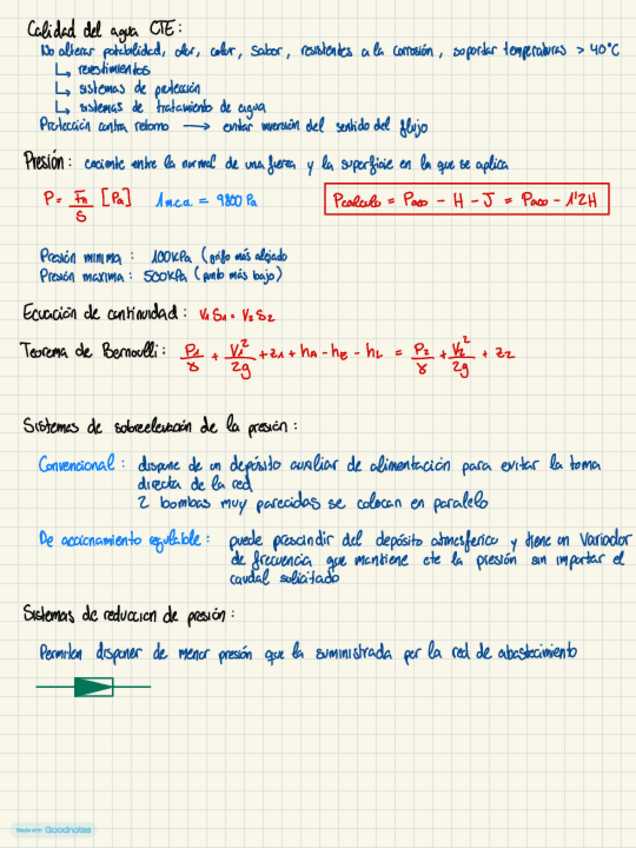 Calidad del agua CTE:
No alterar potabilidad, olor, color, sabor, resistentes a la corrosión, soportar temperaturas > 40°C
↳ revestimientos
↳ sistemas de protección
↳ sistemas de tratamiento de agua
Protección contra retorno → evitar inversión del sentido del flujo
Presión: cociente entre la normal de una fuerza y la superficie en la que se aplica
P = Fn/S [Pa] 1 m.c.a. = 9800 Pa Pcalculo = Paco - H - J = Paco - 1'2H
Presión minima: 100kPa (grifo más alejado
Presión maxima: 500kPa (punto más bajo)
Ecuación de continuidad: V1 S1 = V2 S2
Teorema de Bernoulli: P1/γ + V1²/2g + z1 + hA - hE - hL = P2/γ + V2²/2g + z2
Sistemas de sobreelevación de la presión:
Convencional: dispone de un depósito auxiliar de alimentación para evitar la toma
directa de la red
2 bombas muy parecidas se colocan en paralelo
De accionamiento regulable: puede prescindir del depósito atmosferico y tiene un Variador
de frecuencia que mantiene cte la presión sin importar el
caudal solicitado
Sistemas de reduccion de presión:
Permiten disponer de menor presión que la suministrada por la red de abastecimiento
Made with Goodnotes